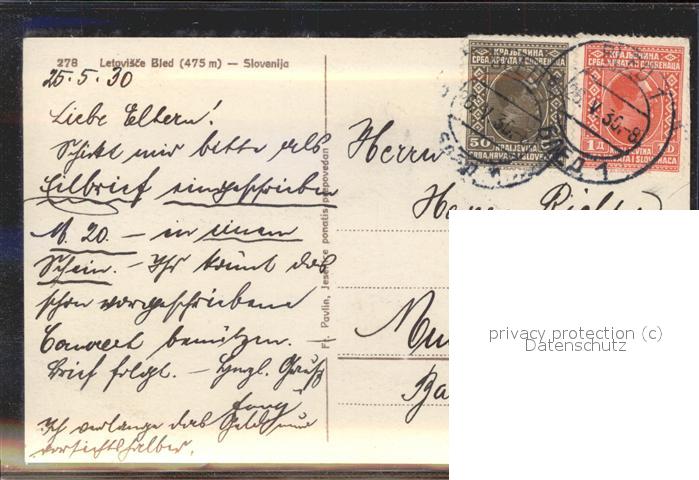 278 Letovišče Bled (475 m) — Slovenija
25.5.30
Liebe Eltern!
Schickt mir bitte als
Eilbrief eingeschrieben
M. 20. – in einem
Schein. – Ihr könnt das
schon vorgeschriebene
Couvert benützen. –
Brief folgt. – Herzl. Gruß
Ich verlange das Geld nur
vorsichtshalber.
Fr. Pavlin, Jesenice ponatis prepovedan
КРАЉЕВИНА
СРБА, ХРВАТА И СЛОВЕНАЦА
50
KRALJEVINA
SRBA, HRVATA I SLOVENACA
КРАЉЕВИНА
СРБА, ХРВАТА И СЛОВЕНАЦА
1 Д
KRALJEVINA
БЛЕД 1
Herrn
privacy protection (c)
Datenschutz